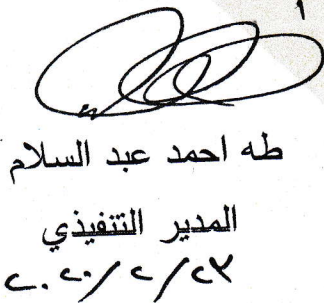 طه احمد عبد السلام
المدير التنفيذي
٢٠٢٠/٢/٢٣